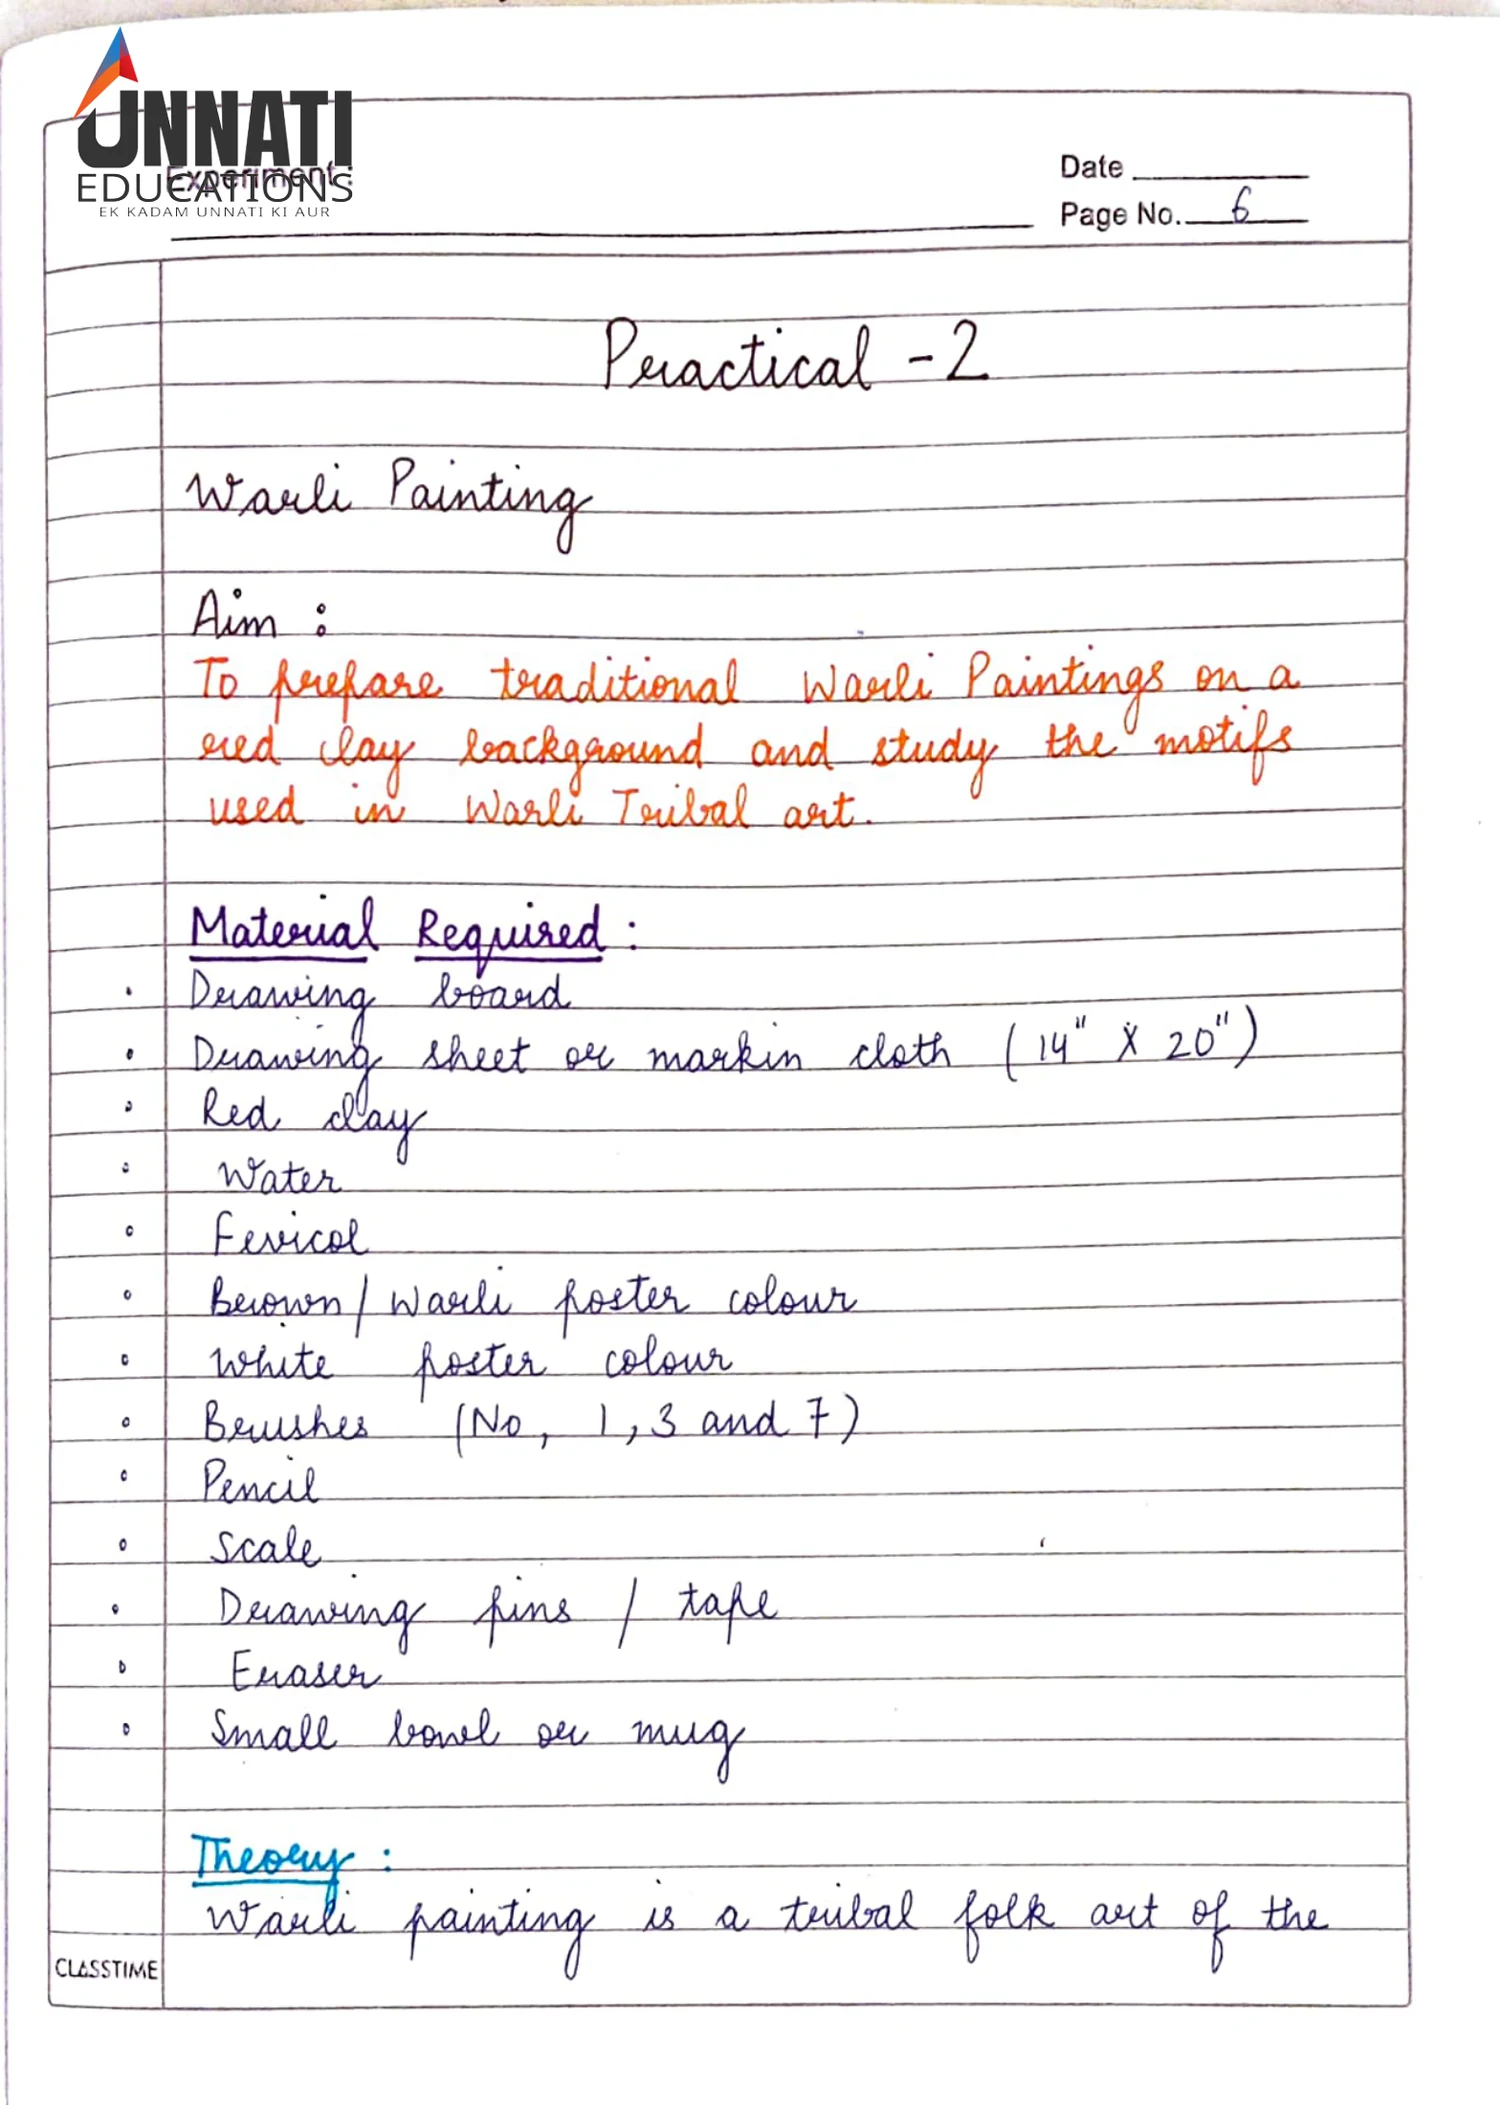 UNNATI
EDUCATIONS
EK KADAM UNNATI KI AUR
Experiment :
Date
Page No. 6
Practical - 2
Warli Painting
Aim :
To prepare traditional Warli Paintings on a
red clay background and study the motifs
used in Warli Tribal art.
Material Required :
• Drawing board
• Drawing sheet or markin cloth (14" X 20")
• Red clay
• Water
• Fevicol
• Brown / Warli poster colour
• White poster colour
• Brushes (No, 1, 3 and 7)
• Pencil
• Scale
• Drawing pins / tape
• Eraser
• Small bowl or mug
Theory :
Warli painting is a tribal folk art of the
CLASSTIME